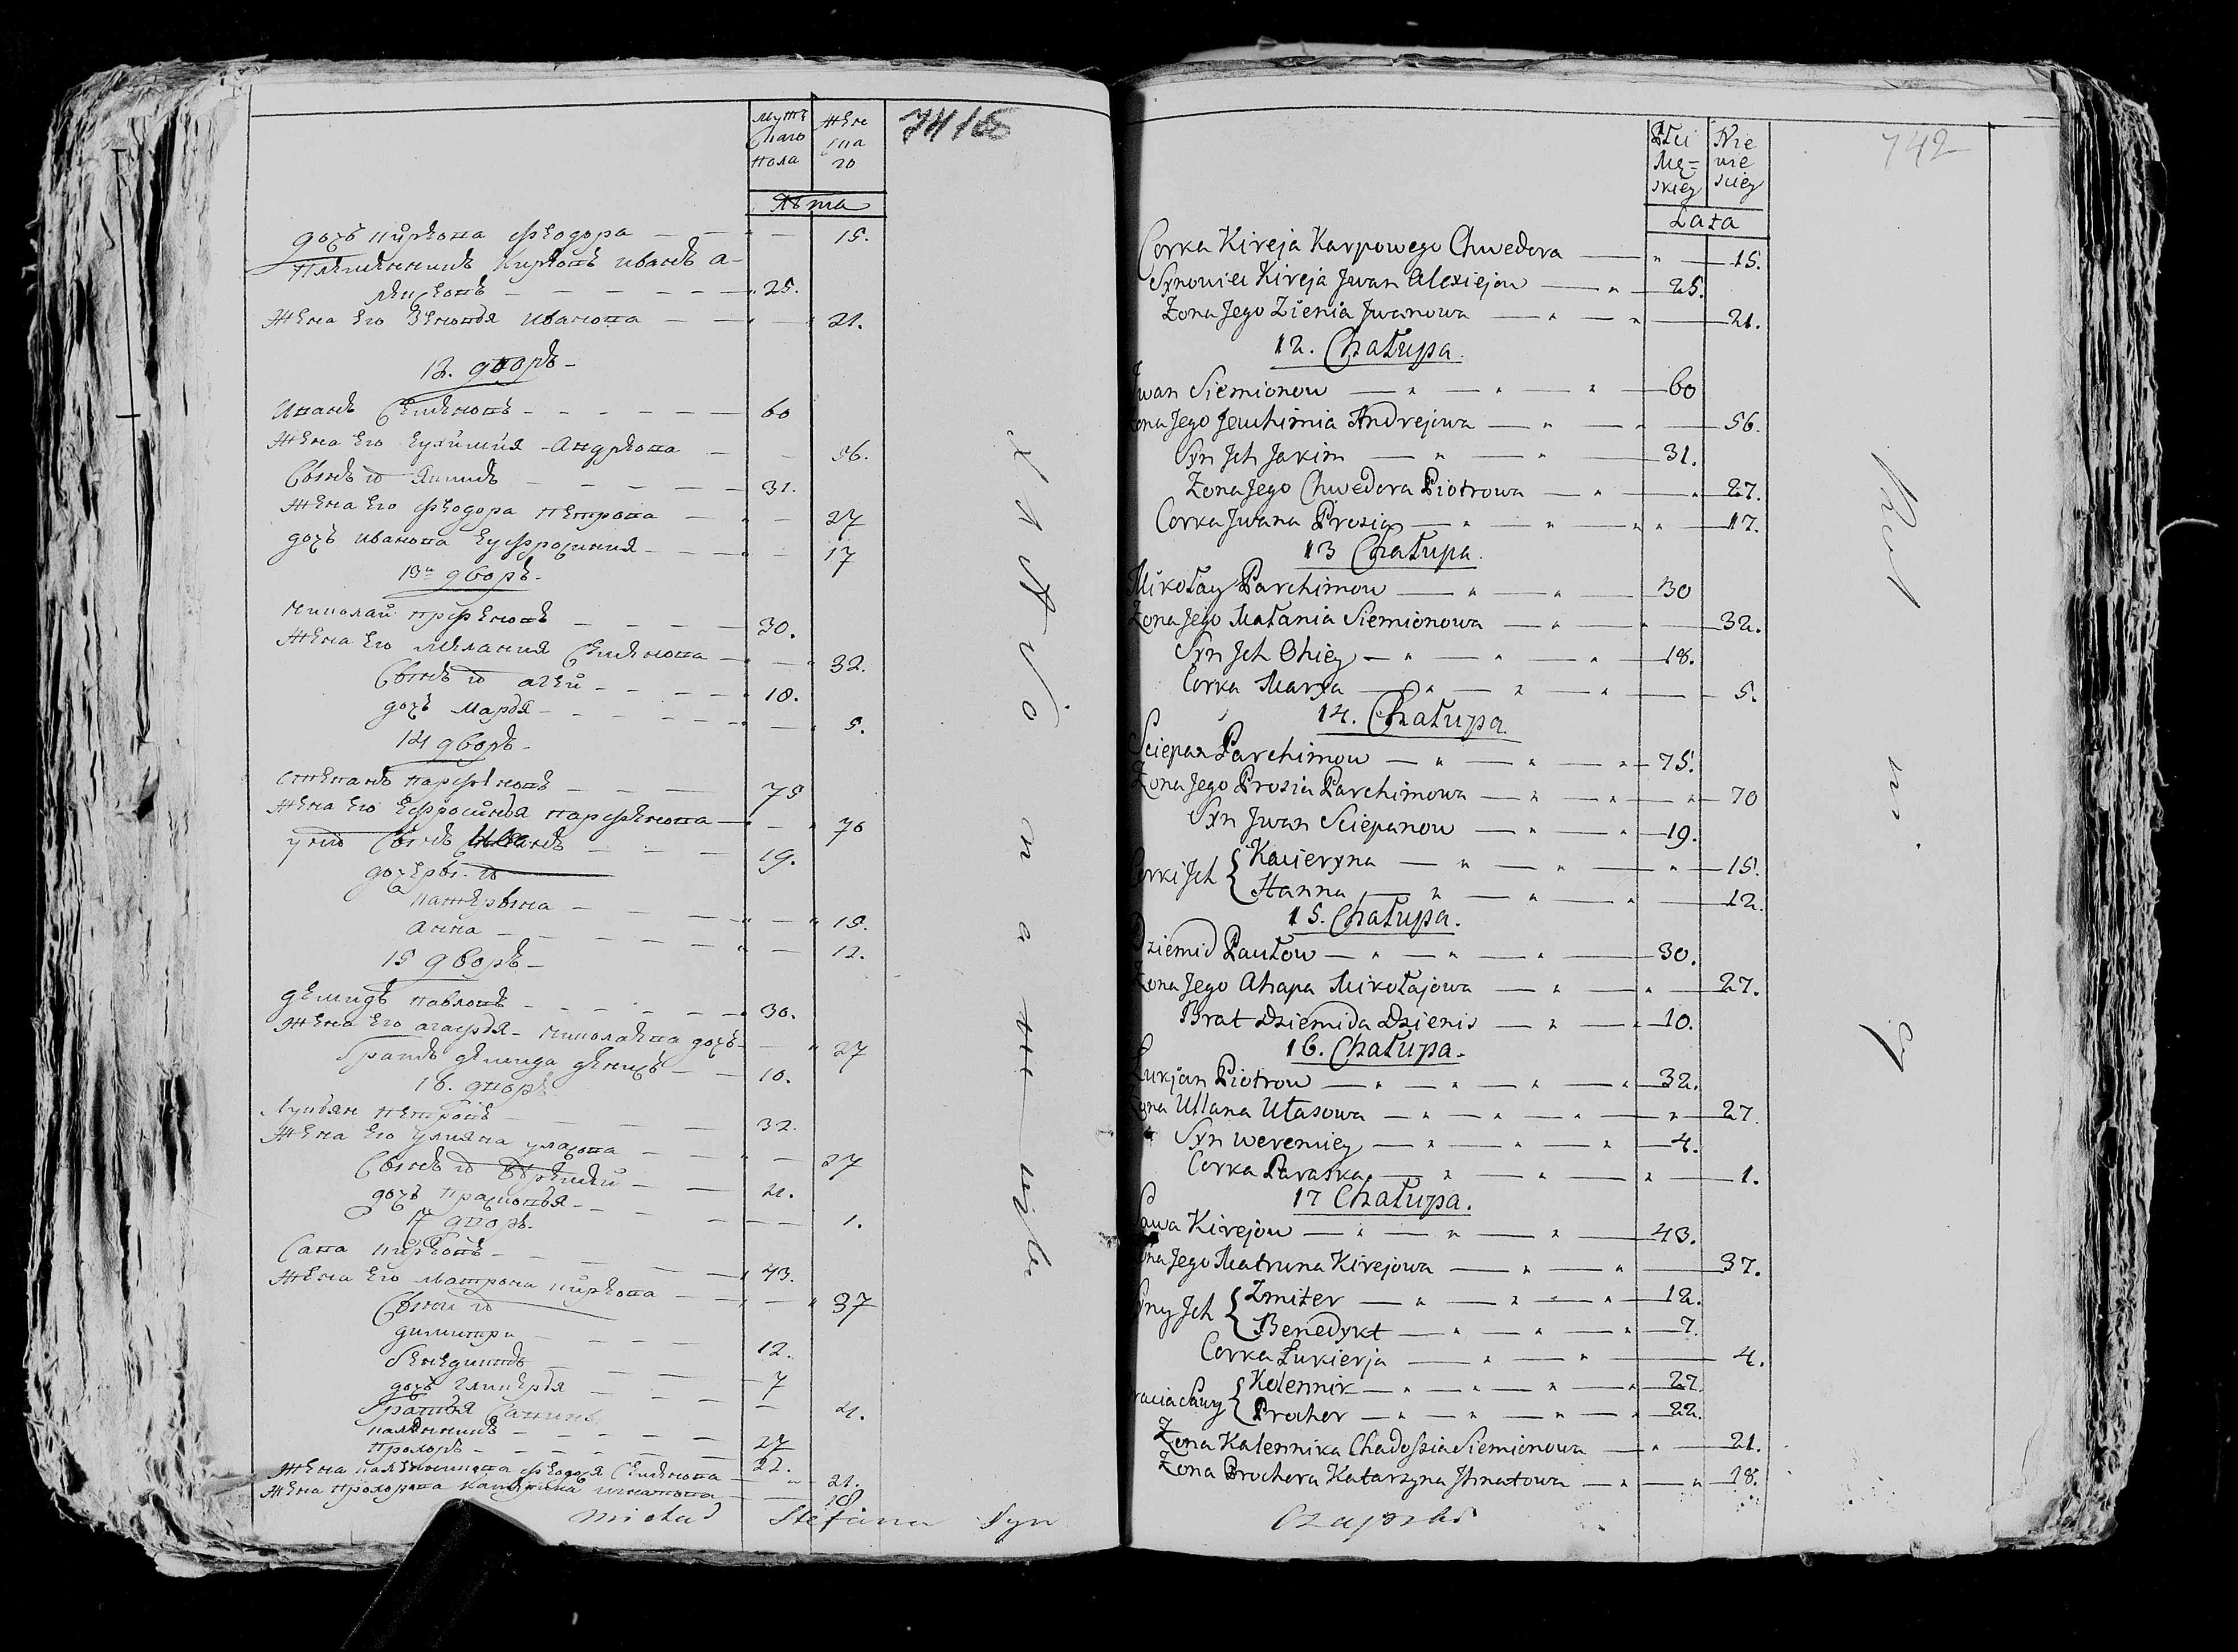 Мужескаго пола
женскаго
Лѣта
дочь кирѣева ѳеодора — 15.
племянникъ кирѣевъ иванъ а-
лексѣевъ — 25.
жена его зеновья иванова — 21.
12. дворъ
иванъ семеновъ — 60
жена его еухимия андрѣева — 56.
сынъ якимъ — 31.
жена его ѳеодора петрова — 27
дочь иванова еуфросиния — 17
13 дворъ.
николай парфеновъ — 30.
жена его мелания семенова — 32.
сынъ агей — 18.
дочь марья — 5.
14 дворъ
степанъ парфеновъ — 75
жена его ефросинья парфенова — 70
у него сынъ иванъ — 19.
дочери
катерына — 15.
анна — 12.
15 дворъ
демидъ павловъ — 30.
жена его агафья николаева дочь — 27
братъ демида денисъ — 10.
16. дворъ
лукьян петровъ — 32.
жена его улияна уласова — 27
сынъ верѣмей — 4.
дочь прасковья — 1.
17 дворъ.
сава кирѣевъ — 43.
жена его матрона кирѣева — 37
сыны
димитри — 12.
бенедиктъ — 7
дочь гликерья — 4.
братья савины
каленникъ — 27
прохоръ — 22.
жена каленникова ѳеодося семенова — 21.
жена прохорова катерина игнатова — 18.
Stefana Syn
742
Płci Męskiey
Niewieściey
Lata
Corka Kireja Karpowego Chwedora — 15.
Synowiec Kireja Jwan Alexiejow — 25.
Zona Jego Zienia Jwanowa — 21.
12. Chałupa.
Jwan Siemionow — 60
Zona Jego Jewchimia Andrejowa — 56.
Syn Jch Jakim — 31.
Zona Jego Chwedora Piotrowa — 27.
Corka Jwana Prosia — 17.
13 Chałupa.
Mikołay Parchimow — 30
Zona Jego Małania Siemionowa — 32.
Syn Jch Ohiey — 18.
Corka Marya — 5.
14. Chałupa.
Sciepan Parchimow — 75.
Zona Jego Prosia Parchimowa — 70
Syn Jwan Sciepanow — 19.
Corki Jch { Kacieryna — 15.
Hanna — 12.
15. Chałupa.
Dziemid Pawłow — 30.
Zona Jego Ahapa Mikołajowa — 27.
Brat Dziemida Dzienis — 10.
16. Chałupa.
Łukjan Piotrow — 32.
Zona Ullana Ułasowa — 27.
Syn Weremiey — 4.
Corka Paraska — 1.
17 Chałupa.
Sawa Kirejow — 43.
Zona Jego Matruna Kirejowa — 37.
Syny Jch { Zmiter — 12.
Benedykt — 7.
Corka Łukierja — 4.
Bracia Sawy { Kolennik — 27.
Prochor — 22.
Zona Kalennika Chadosia Siemionowa — 21.
Zona Prochora Katarzyna Jhnatowa — 18.